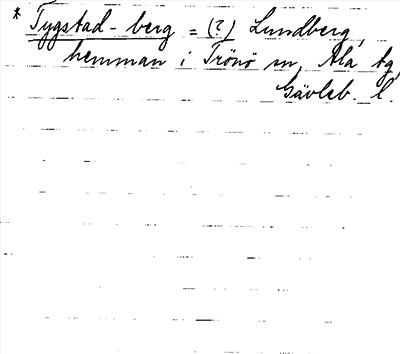 * Tygstad-berg = (?) Lundberg,
hemman i Trönö sn, Ala tg,
Gävleb. l.